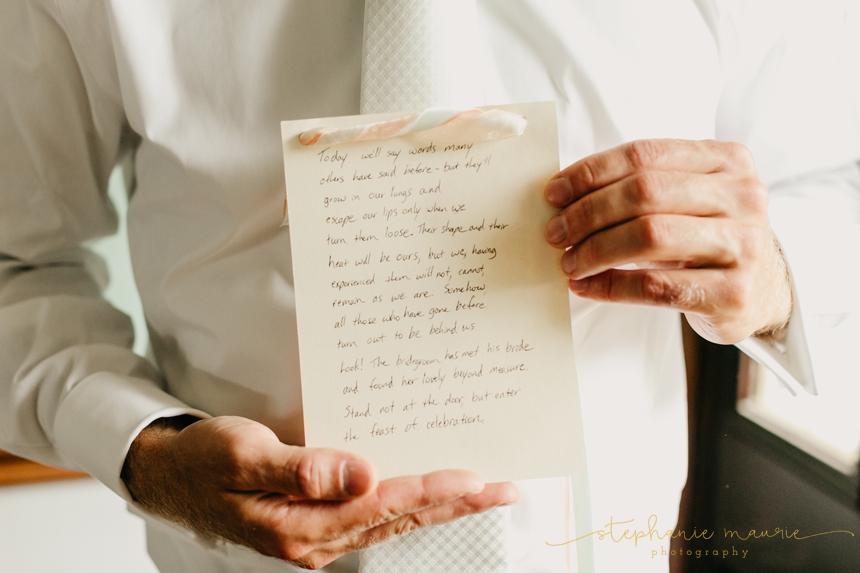 Today we'll say words many
others have said before - but they'll
grow in our lungs and
escape our lips only when we
turn them loose. Their shape and their
heat will be ours, but we, having
experienced them will not, cannot,
remain as we are. Somehow
all those who have gone before
turn out to be behind us
Look! The bridegroom has met his bride
and found her lovely beyond measure.
Stand not at the door, but enter
the feast of celebration.
stephanie maurie
photography